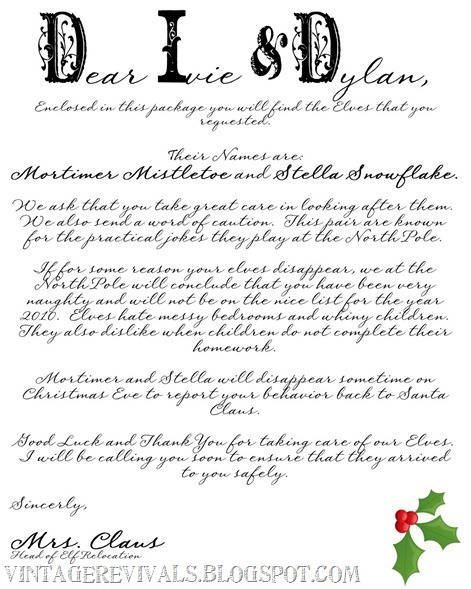 Dear Ivie & Dylan,
Enclosed in this package you will find the Elves that you
requested.
Their Names are:
Mortimer Mistletoe and Stella Snowflake.
We ask that you take great care in looking after them.
We also send a word of caution. This pair are known
for the practical jokes they play at the North Pole.
If for some reason your elves disappear, we at the
North Pole will conclude that you have been very
naughty and will not be on the nice list for the year
2010. Elves hate messy bedrooms and whiny children.
They also dislike when children do not complete their
homework.
Mortimer and Stella will disappear sometime on
Christmas Eve to report your behavior back to Santa
Claus.
Good Luck and Thank You for taking care of our Elves.
I will be calling you soon to ensure that they arrived
to you safely.
Sincerly,
Mrs. Claus
Head of Elf Relocation
VINTAGEREVIVALS.BLOGSPOT.COM